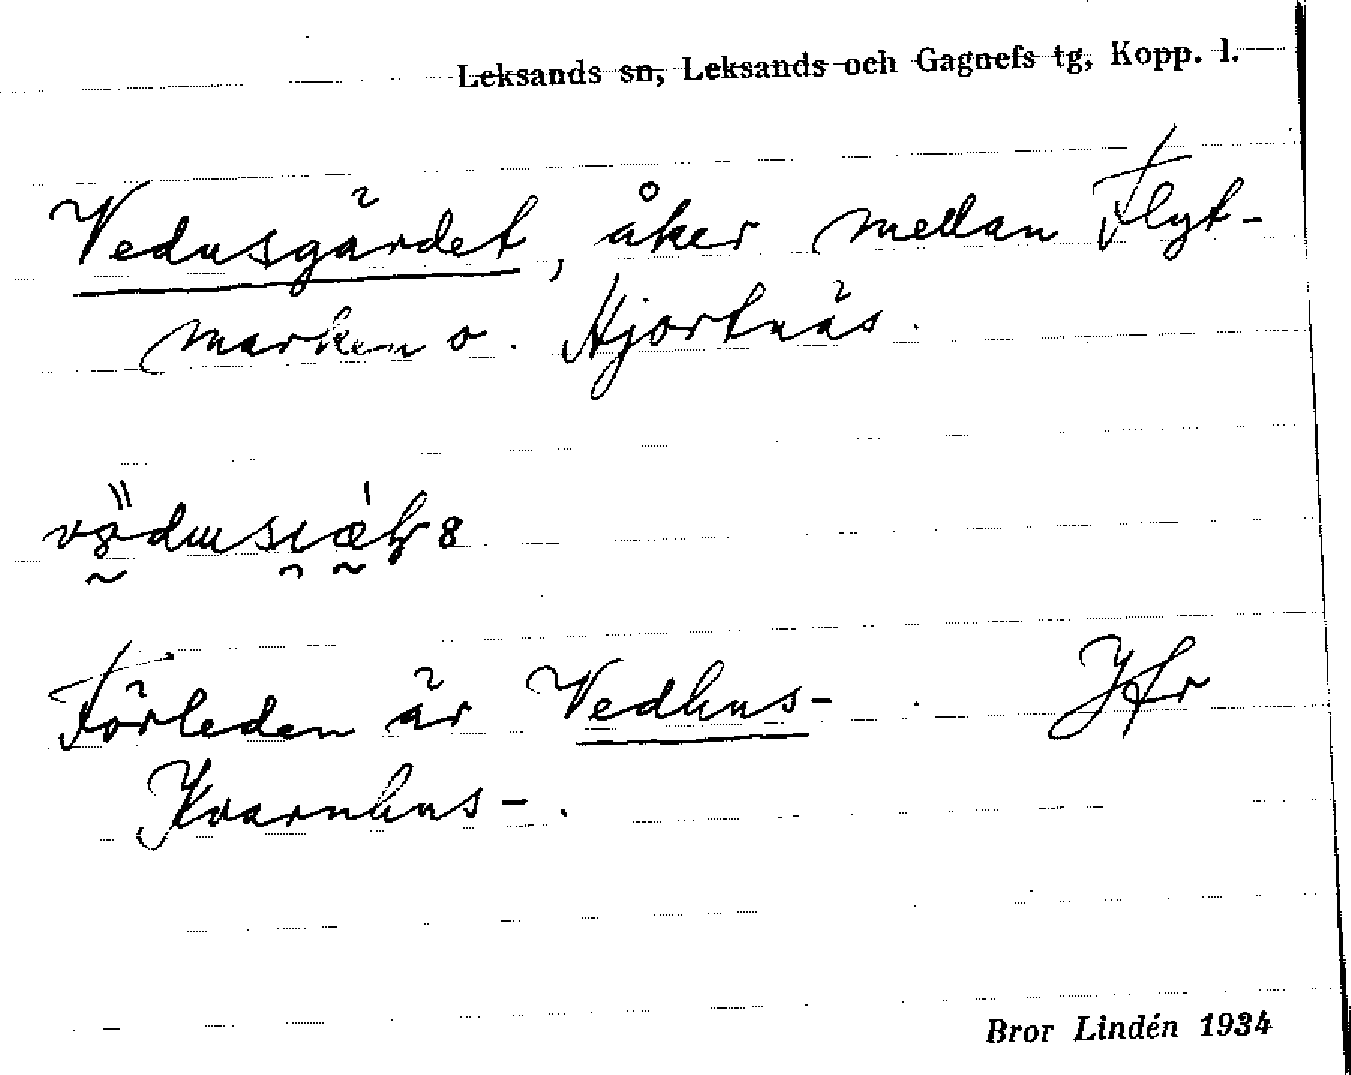 Leksands sn, Leksands och Gagnefs tg, Kopp. l.
Vedusgärdet, åker mellan Flyt-
marken o. Hjortnäs.
Förleden är Vedhus-. Jfr
Kvarnhus-.
Bror Lindén 1934